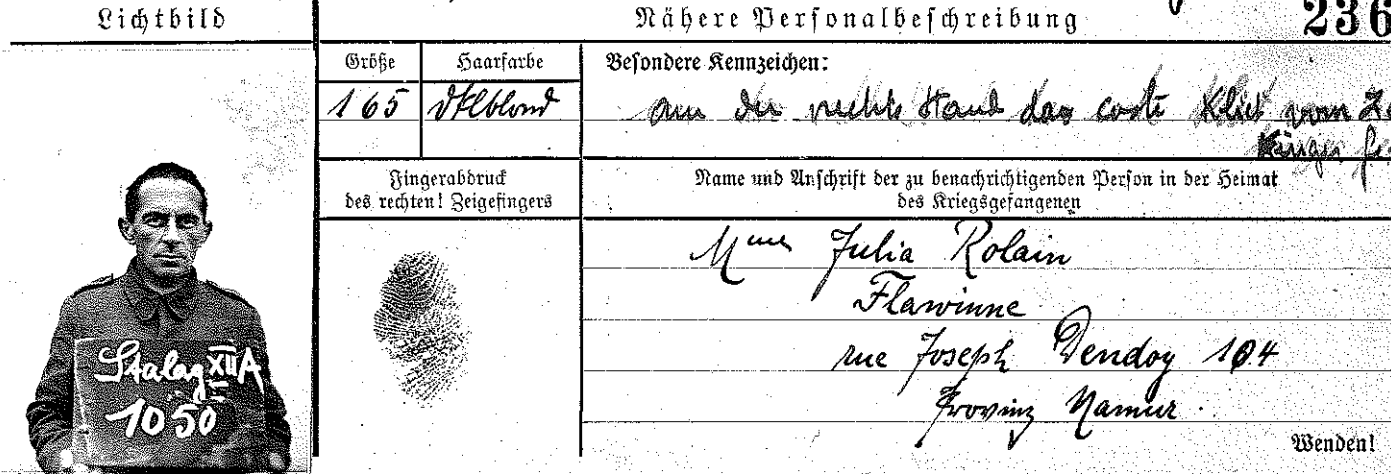 Lichtbild
Nähere Personalbeschreibung
236
Größe
Haarfarbe
Besondere Kennzeichen:
165
dklblond
an der rechts Hand das erste Glied vom
Finger
Fingerabdruck
des rechten! Zeigefingers
Name und Anschrift der zu benachrichtigenden Person in der Heimat
des Kriegsgefangenen
Mme Julia Rolain
Flawinne
rue Joseph Dendoy 104
Provinz Namur.
Stalag XII A
1050
Wenden!